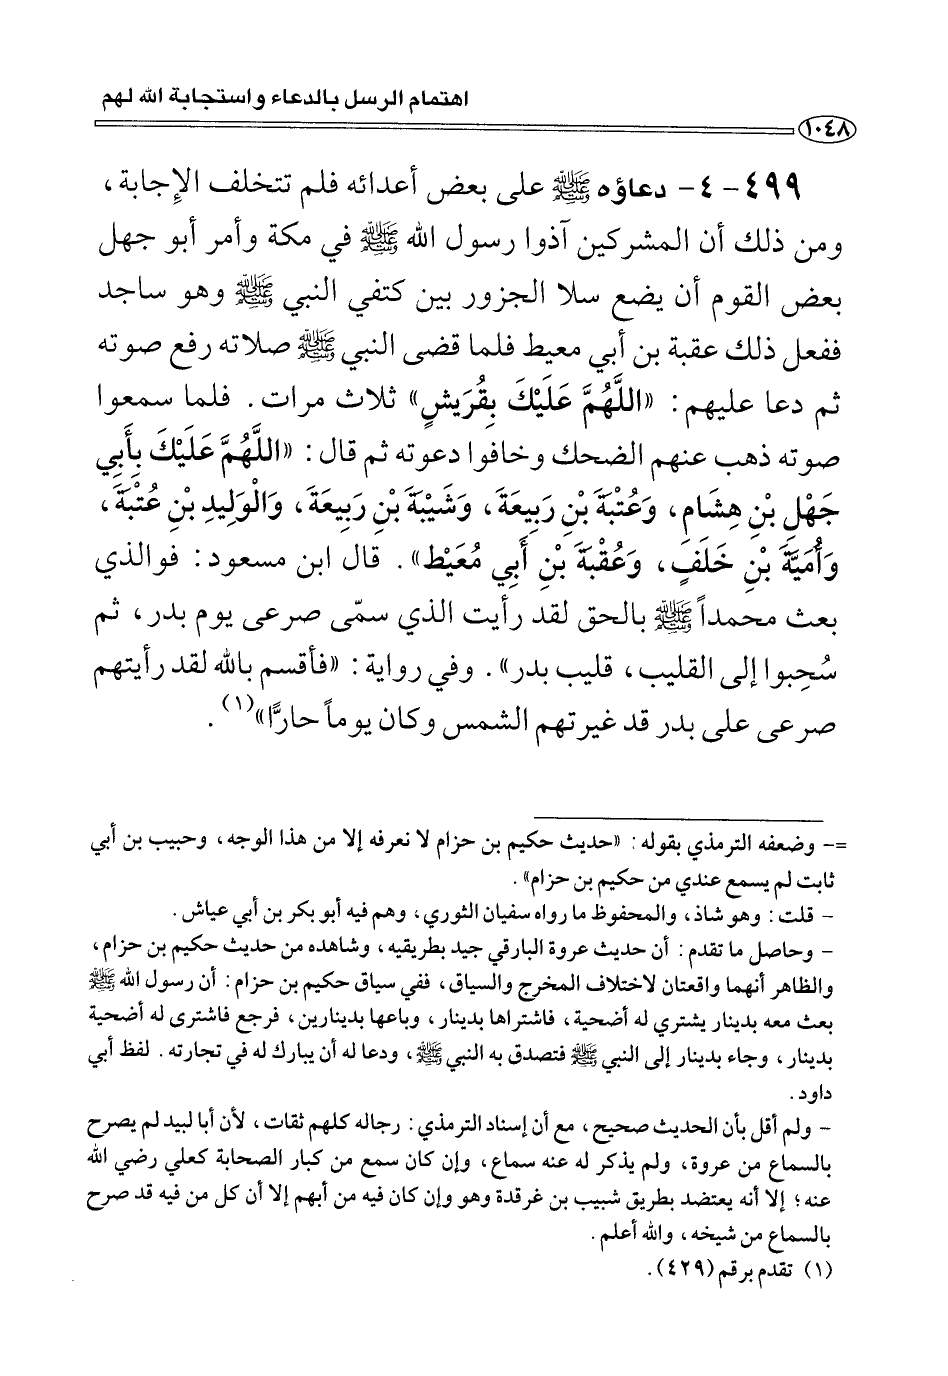 اهتمام الرسل بالدعاء واستجابة الله لهم
١٠٤٨
٤٩٩ - ٤ - دعاؤه ﷺ على بعض أعدائه فلم تتخلف الإجابة،
ومن ذلك أن المشركين آذوا رسول الله ﷺ في مكة وأمر أبو جهل
بعض القوم أن يضع سلا الجزور بين كتفي النبي ﷺ وهو ساجد
ففعل ذلك عقبة بن أبي معيط فلما قضى النبي ﷺ صلاته رفع صوته
ثم دعا عليهم: «اللَّهُمَّ عَلَيْكَ بِقُرَيْشٍ» ثلاث مرات. فلما سمعوا
صوته ذهب عنهم الضحك وخافوا دعوته ثم قال: «اللَّهُمَّ عَلَيْكَ بِأَبِي
جَهْلِ بْنِ هِشَامٍ، وَعُتْبَةَ بْنِ رَبِيعَةَ، وَشَيْبَةَ بْنِ رَبِيعَةَ، وَالْوَلِيدِ بْنِ عُتْبَةَ،
وَأُمَيَّةَ بْنِ خَلَفٍ، وَعُقْبَةَ بْنِ أَبِي مُعَيْط». قال ابن مسعود: فوالذي
بعث محمداً ﷺ بالحق لقد رأيت الذي سمّى صرعى يوم بدر، ثم
سُحِبوا إلى القليب، قليب بدر». وفي رواية: «فأقسم بالله لقد رأيتهم
صرعى على بدر قد غيرتهم الشمس وكان يوماً حارًّا»(١).
=- وضعفه الترمذي بقوله: «حديث حكيم بن حزام لا نعرفه إلا من هذا الوجه، وحبيب بن أبي
ثابت لم يسمع عندي من حكيم بن حزام».
- قلت: وهو شاذ، والمحفوظ ما رواه سفيان الثوري، وهم فيه أبو بكر بن أبي عياش.
- وحاصل ما تقدم: أن حديث عروة البارقي جيد بطريقيه، وشاهده من حديث حكيم بن حزام،
والظاهر أنهما واقعتان لاختلاف المخرج والسياق، ففي سياق حكيم بن حزام: أن رسول الله ﷺ
بعث معه بدينار يشتري له أضحية، فاشتراها بدينار، وباعها بدينارين، فرجع فاشترى له أضحية
بدينار، وجاء بدينار إلى النبي ﷺ فتصدق به النبي ﷺ، ودعا له أن يبارك له في تجارته. لفظ أبي
داود.
- ولم أقل بأن الحديث صحيح، مع أن إسناد الترمذي: رجاله كلهم ثقات، لأن أبا لبيد لم يصرح
بالسماع من عروة، ولم يذكر له عنه سماع، وإن كان سمع من كبار الصحابة كعلي رضي الله
عنه؛ إلا أنه يعتضد بطريق شبيب بن غرقدة وهو وإن كان فيه من أبهم إلا أن كل من فيه قد صرح
بالسماع من شيخه، والله أعلم.
(١) تقدم برقم (٤٢٩).